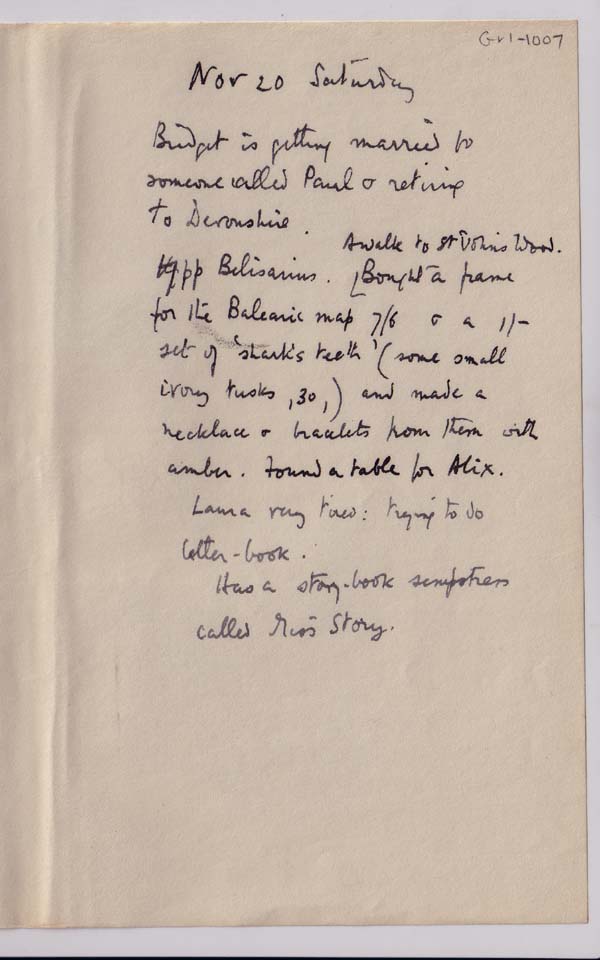 Gr1-1007
Nov 20 Saturday
Bridget is getting married to
someone called Paul & retiring
to Devonshire.
A walk to St Johns Wood.
4pp Belisarius. [Bought a frame
for the Balearic map 7/6 & a 1/-
set of 'shark's teeth' (some small
ivory tusks, 30,) and made a
necklace & bracelets from them with
amber. Found a table for Alix.
Laura very tired: trying to do
letter-book.
Has a story-book sempstress
called Story.